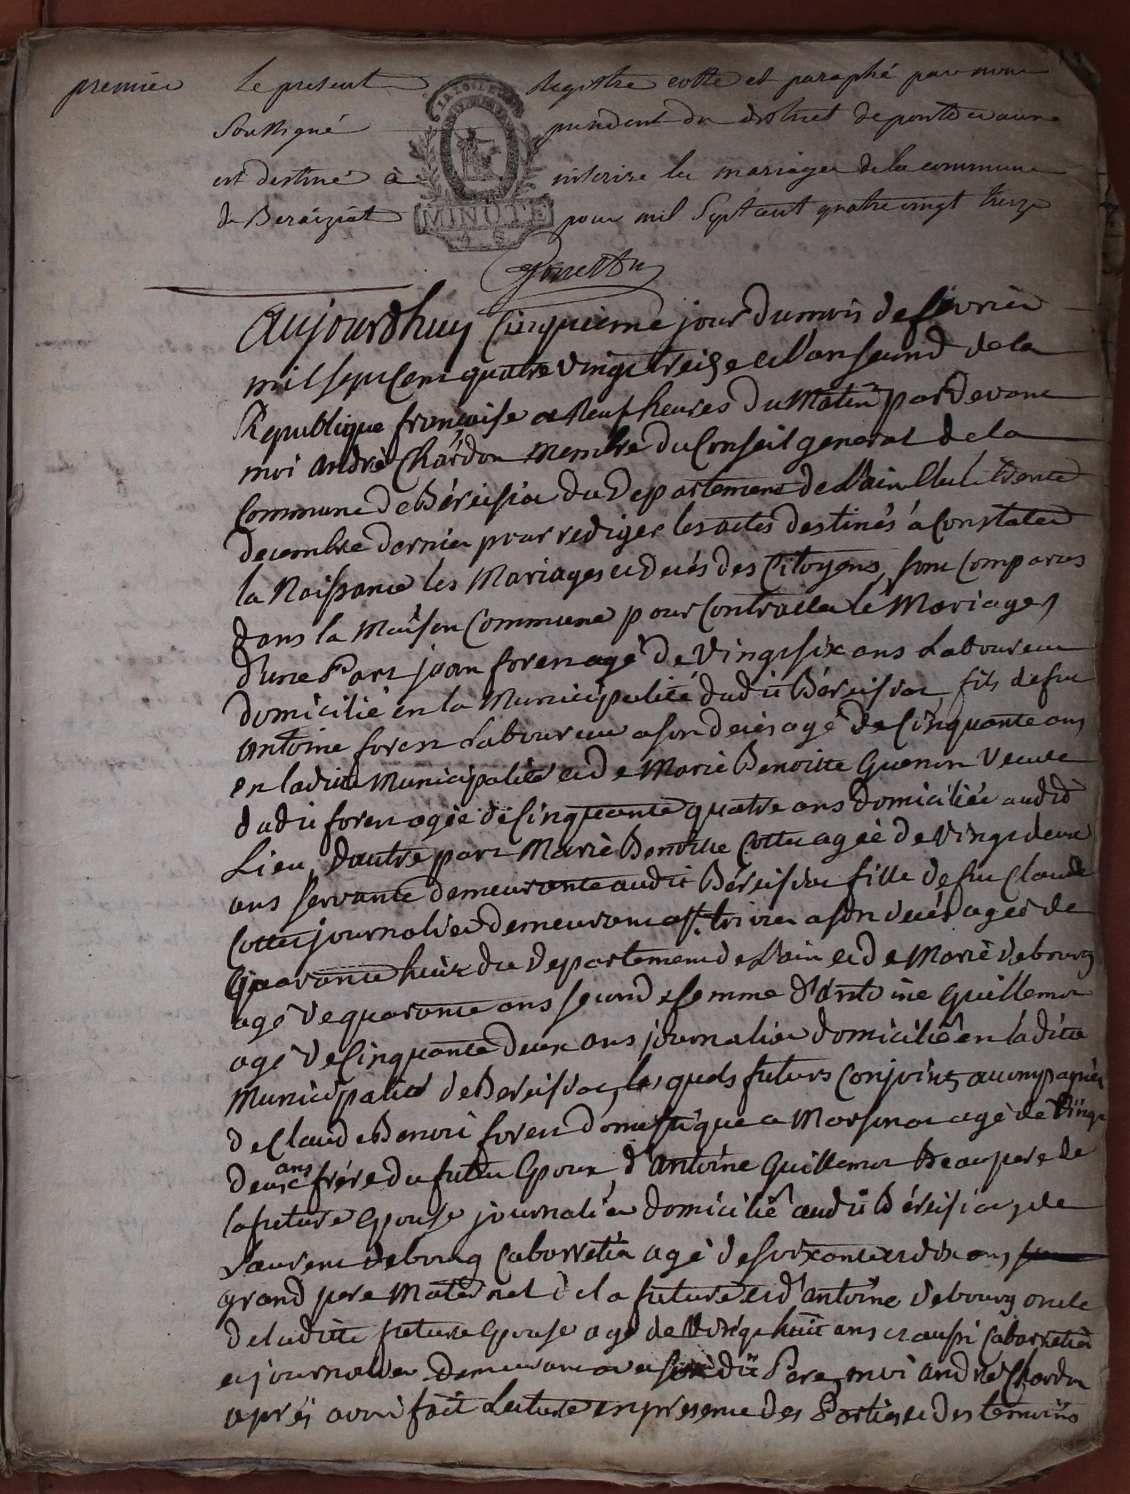 premier le present registre cotté et paraphé par nous
soussigné president du district de pontdevaux
est destiné à inscrire les mariages de la commune
de Beraiziat pour mil sept cent quatre vingt treize
LA LOI LE ROI
MINUTE
4 S
aujourdhuy Cinquieme jour dumois de fevrier
mil sept Cent quatre vingt treize et l'an second de la
Republique francoise a Neuf heures du Matin pardevant
moi andré Chardon Membre du Conseil general de la
Commune de Béreisiat du Departement de l'ain Elu le trente
decembre dernier pour rediger les actes destinés a Constater
la Naissance les Mariages et decés des Citoyens, sont Comparus
dans la Maison Commune pour Contracter le Mariage,
d'une Part jean foren agé de Vingt six ans Laboureur
domicilié en la Municipalité dudit Béreisiat fils de feu
antoine foren Laboureur a son decés agé de Cinquante ans
en ladite Municipalité et de Marie Benoitte Guenon Veuve
dudit foren agée de Cinquante quatre ans domiciliée audit
Lieu, d'autre part Marie Benoitte Cottu agée de Vingt deux
ans servante demeurante audit Béreisiat fille de feu Claude
Cottu journalier demeurant a st. trivier a son decés agée de
Quarante huit du departement de L'ain et de Marie debourg
agé de quarante ans second femme d'antoine Guillemot
agé de Cinquante deux ans journalier domicilié en ladite
Municipalité de Béreisiat, les quels futurs Conjoints accompagnés
de Claude Benoit foren domestique a Marsonat agé de Vingt
deux ans frére du futur Epoux, d'antoine Guillemot Beaupere de
la future Epouse journalier domicilié audit Béreisiat, de
Laurent debourg Cabarretier agé de soixante et dix ans
grand pere Maternel de la future et d'antoine debourg oncle
de ladite future Epouse agé de Vingt huit ans et aussi Cabarretier
et journalier demeurant avec sondit Pere, moi andré Chardon
aprés avoir fait Lecture en presence des Parties et des temoins